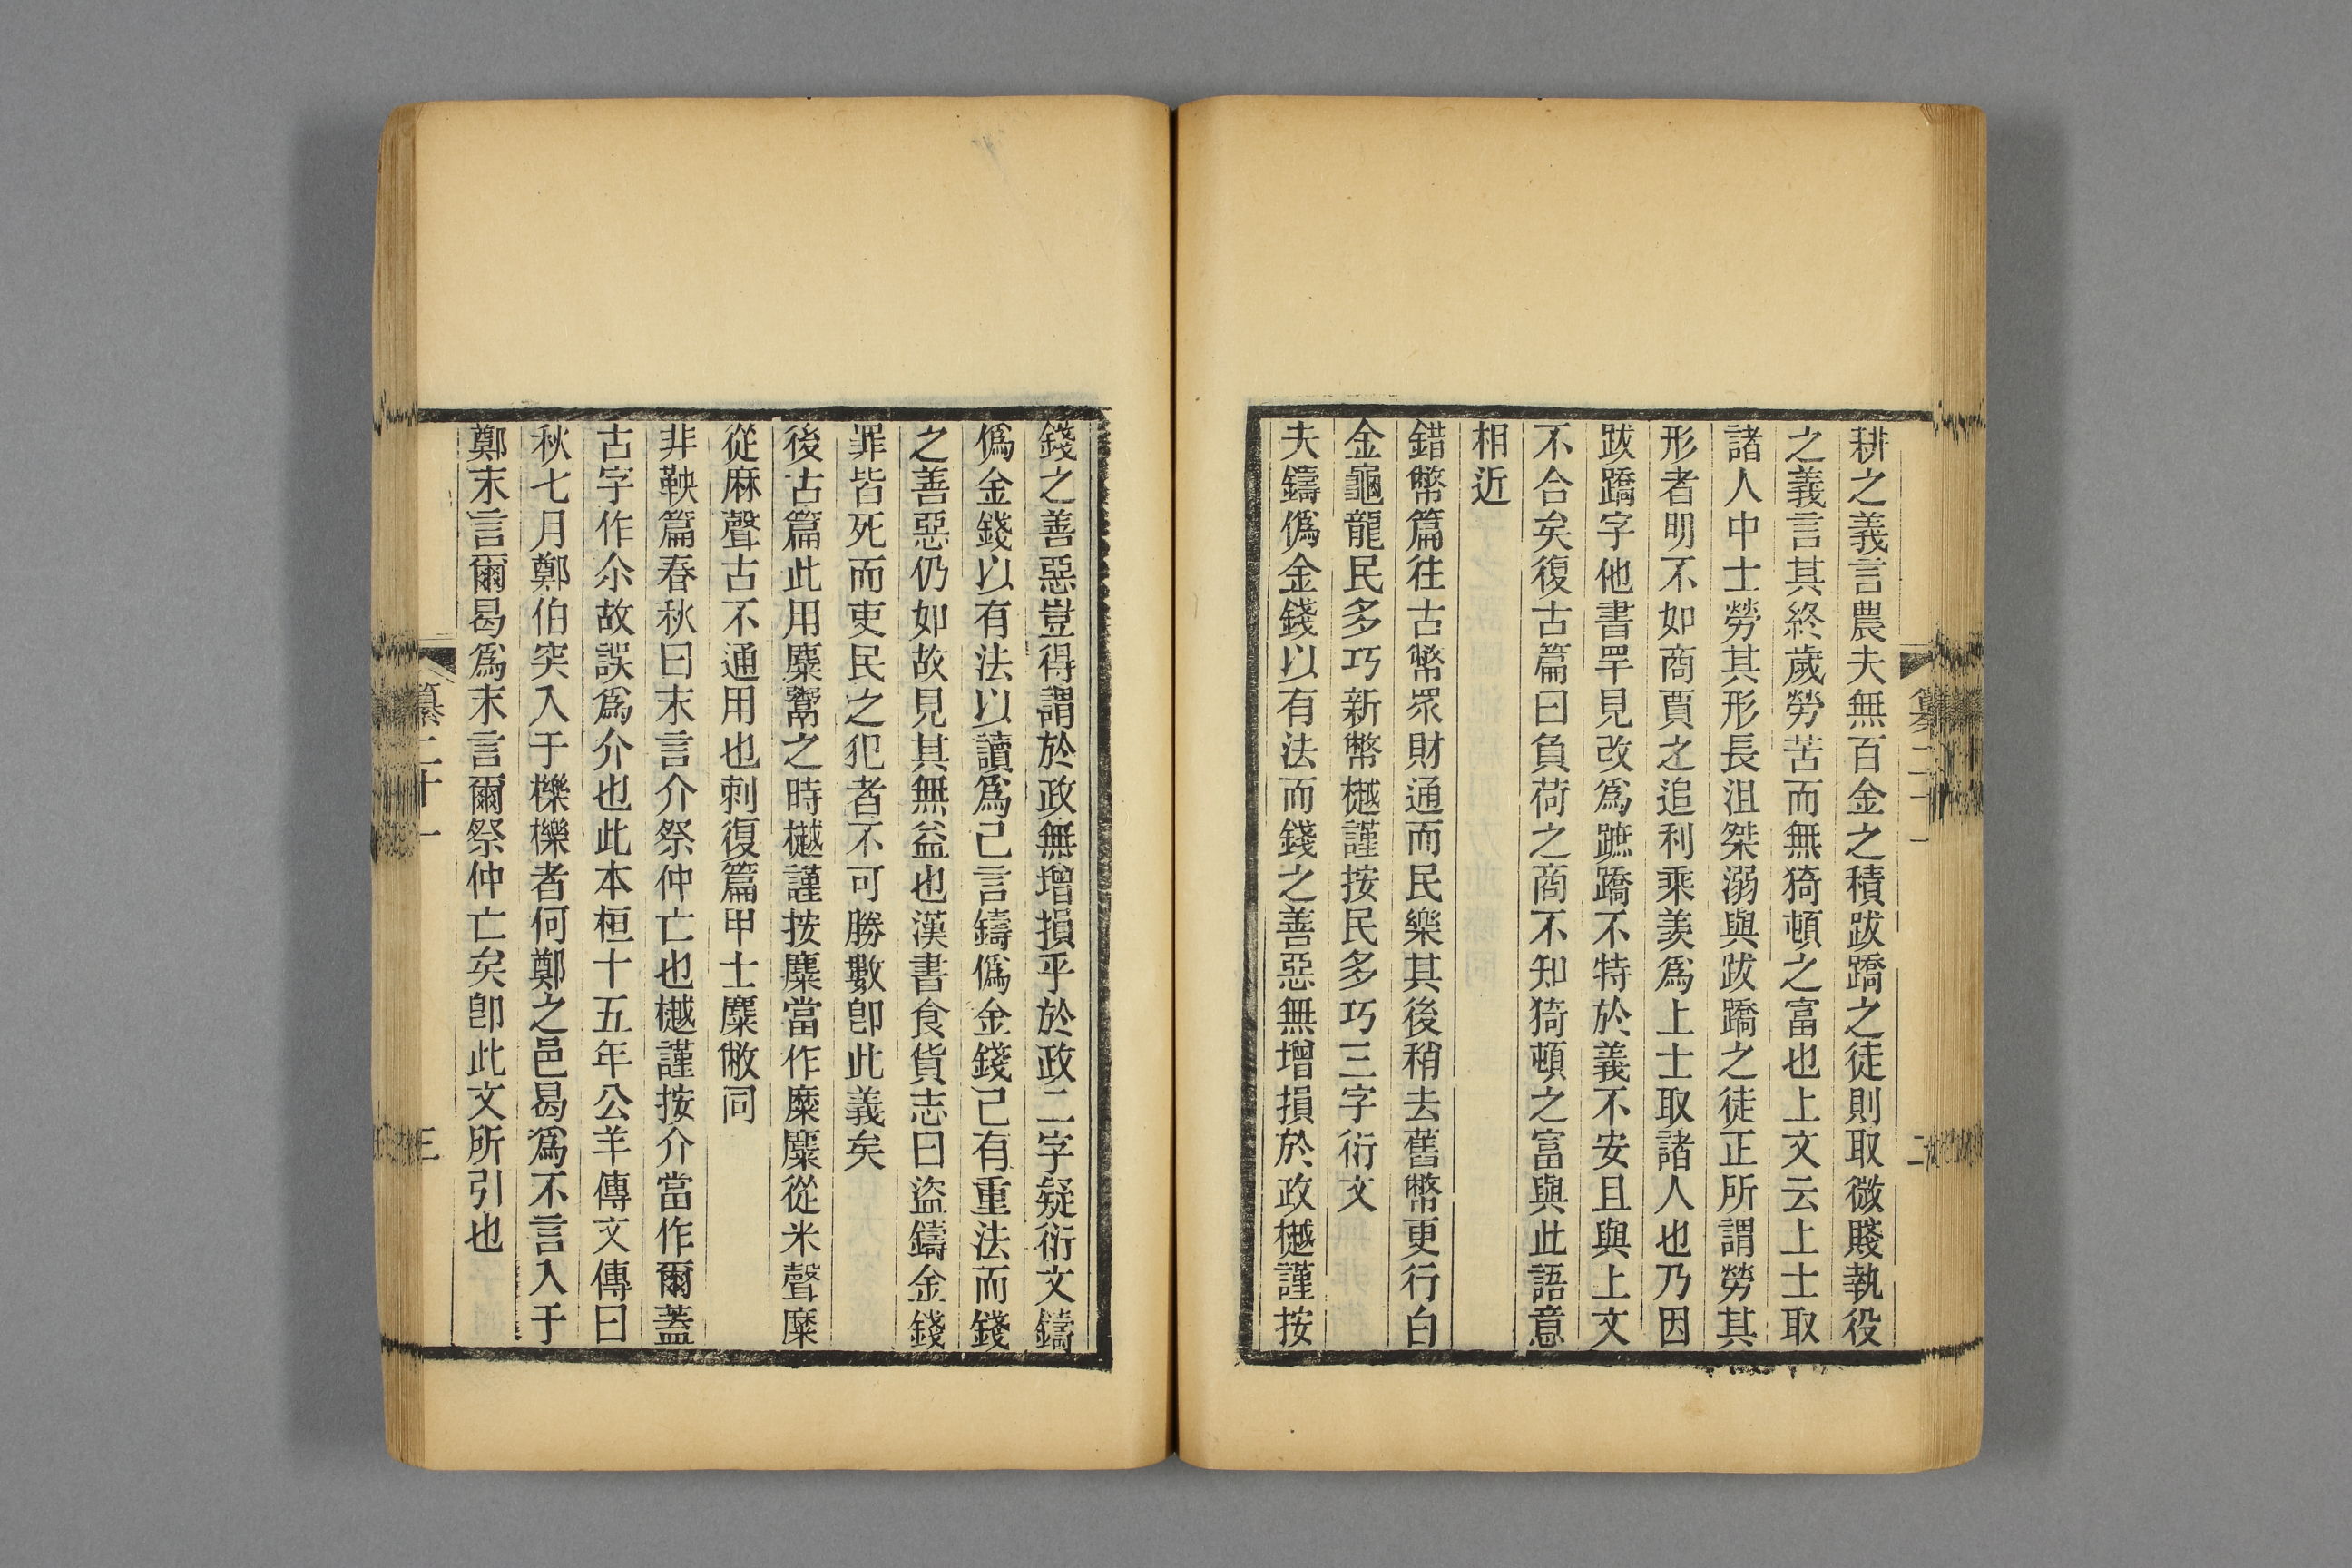 耕之義言農夫無百金之積跋蹻之徒則取微賤執役
之義言其終歲勞苦而無猗頓之富也上文云上士取
諸人中士勞其形長沮桀溺與跋蹻之徒正所謂勞其
形者明不如商賈之追利乘羨爲上士取諸人也乃因
跋蹻字他書罕見改爲蹠蹻不特於義不安且與上文
不合矣復古篇曰負荷之商不知猗頓之富與此語意
相近
錯幣篇往古幣眾財通而民樂其後稍去舊幣更行白
金龜龍民多巧新幣樾謹按民多巧三字衍文
夫鑄僞金錢以有法而錢之善惡無增損於政樾謹按
錢之善惡豈得謂於政無增損乎於政二字疑衍文鑄
僞金錢以有法以讀爲己言鑄僞金錢己有重法而錢
之善惡仍如故見其無益也漢書食貨志曰盜鑄金錢
罪皆死而吏民之犯者不可勝數卽此義矣
後古篇此用麋鬻之時樾謹按麋當作糜麋從米聲糜
從麻聲古不通用也刺復篇甲士糜敝同
非鞅篇春秋曰末言介祭仲亡也樾謹按介當作爾蓋
古字作尒故誤爲介也此本桓十五年公羊傳文傳曰
秋七月鄭伯突入于櫟櫟者何鄭之邑曷爲不言入于
鄭末言爾曷爲末言爾祭仲亡矣卽此文所引也
纂二十一
二
三